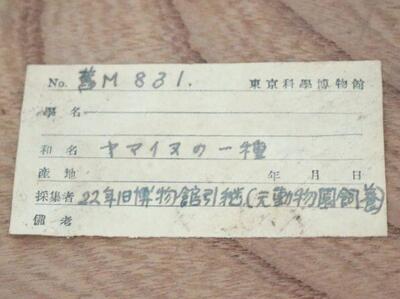 No. 舊M831. 東京科學博物館
學名
和名 ヤマイヌの一種
產地 年 月 日
採集者 22年旧博物館引継(元動物園飼養)
備考